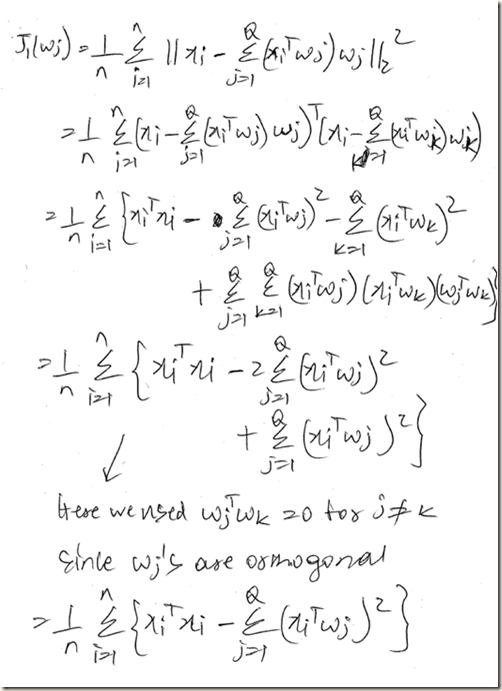 J₁(wj) = 1/n Σ_{i=1}^{n} || xi - Σ_{j=1}^{Q} (xiᵀwj) wj ||₂²
= 1/n Σ_{i=1}^{n} (xi - Σ_{j=1}^{Q} (xiᵀwj) wj)ᵀ (xi - Σ_{k=1}^{Q} (xiᵀwk) wk)
= 1/n Σ_{i=1}^{n} { xiᵀxi - Σ_{j=1}^{Q} (xiᵀwj)² - Σ_{k=1}^{Q} (xiᵀwk)²
+ Σ_{j=1}^{Q} Σ_{k=1}^{Q} (xiᵀwj) (xiᵀwk) (wjᵀwk) }
= 1/n Σ_{i=1}^{n} { xiᵀxi - 2 Σ_{j=1}^{Q} (xiᵀwj)²
+ Σ_{j=1}^{Q} (xiᵀwj)² }
Here we used wjᵀwk = 0 for j ≠ k
since wj's are orthogonal
= 1/n Σ_{i=1}^{n} { xiᵀxi - Σ_{j=1}^{Q} (xiᵀwj)² }